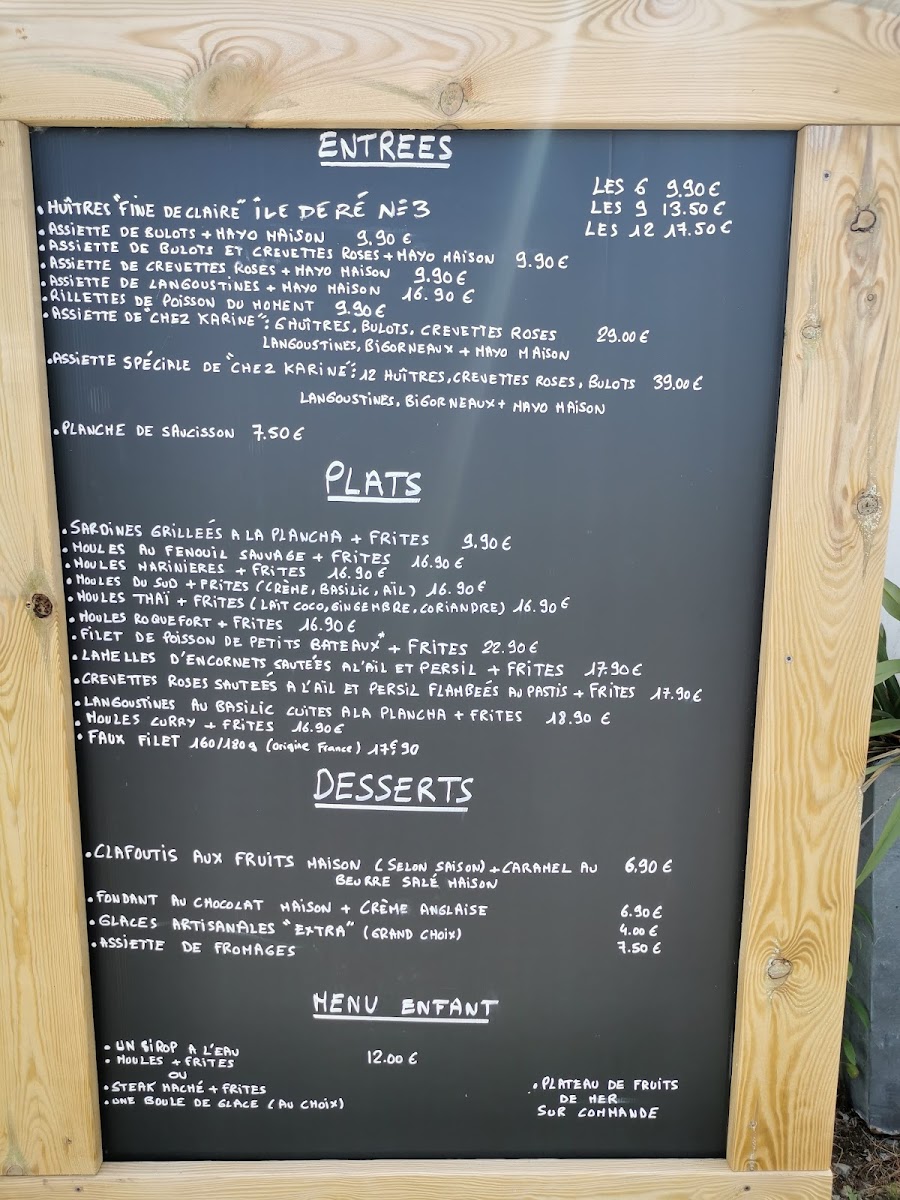 ENTREES
LES 6 9.90€
• HUÎTRES "FINE DE CLAIRE" ÎLE DE RÉ N=3 LES 9 13.50€
LES 12 17.50€
• ASSIETTE DE BULOTS + MAYO MAISON 9.90 €
• ASSIETTE DE BULOTS ET CREVETTES ROSES + MAYO MAISON 9.90€
• ASSIETTE DE CREVETTES ROSES + MAYO MAISON 9.90€
• ASSIETTE DE LANGOUSTINES + MAYO MAISON 16.90 €
• RILLETTES DE POISSON DU MOMENT 9.90€
• ASSIETTE DE "CHEZ KARINE": 6 HUÎTRES, BULOTS, CREVETTES ROSES 29.00€
LANGOUSTINES, BIGORNEAUX + MAYO MAISON
• ASSIETTE SPÉCIALE DE "CHEZ KARINE": 12 HUÎTRES, CREVETTES ROSES, BULOTS 39.00€
LANGOUSTINES, BIGORNEAUX + MAYO MAISON
• PLANCHE DE SAUCISSON 7.50€
PLATS
• SARDINES GRILLEÉS A LA PLANCHA + FRITES 9.90€
• MOULES AU FENOUIL SAUVAGE + FRITES 16.90€
• MOULES MARINIERES + FRITES 16.90€
• MOULES DU SUD + FRITES (CRÈME, BASILIC, AÏL) 16.90€
• MOULES THAÏ + FRITES (LAIT COCO, GINGEMBRE, CORIANDRE) 16.90€
• MOULES ROQUEFORT + FRITES 16.90€
• FILET DE POISSON DE PETITS BATEAUX* + FRITES 22.90€
• LAMELLES D'ENCORNETS SAUTEÉS A L'AÏL ET PERSIL + FRITES 17.90€
• CREVETTES ROSES SAUTEÉS A L'AÏL ET PERSIL FLAMBEÉS AU PASTIS + FRITES 17.90€
• LANGOUSTINES AU BASILIC CUITES A LA PLANCHA + FRITES 18.90 €
• MOULES CURRY + FRITES 16.90€
• FAUX FILET 160/180g (origine France) 17€90
DESSERTS
• CLAFOUTIS AUX FRUITS MAISON (SELON SAISON) + CARAMEL AU 6.90€
BEURRE SALÉ MAISON
• FONDANT AU CHOCOLAT MAISON + CRÈME ANGLAISE 6.90€
• GLACES ARTISANALES "EXTRA" (GRAND CHOIX) 4.00€
• ASSIETTE DE FROMAGES 7.50€
MENU ENFANT
• UN SIROP A L'EAU 12.00 €
• MOULES + FRITES
OU
• STEAK HACHÉ + FRITES
• UNE BOULE DE GLACE (AU CHOIX)
• PLATEAU DE FRUITS
DE MER
SUR COMMANDE